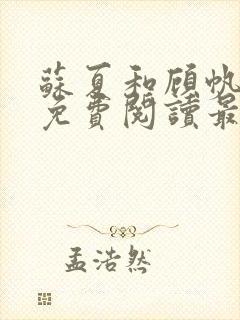 蘇夏和顾帆
免費閱讀最
孟浩然